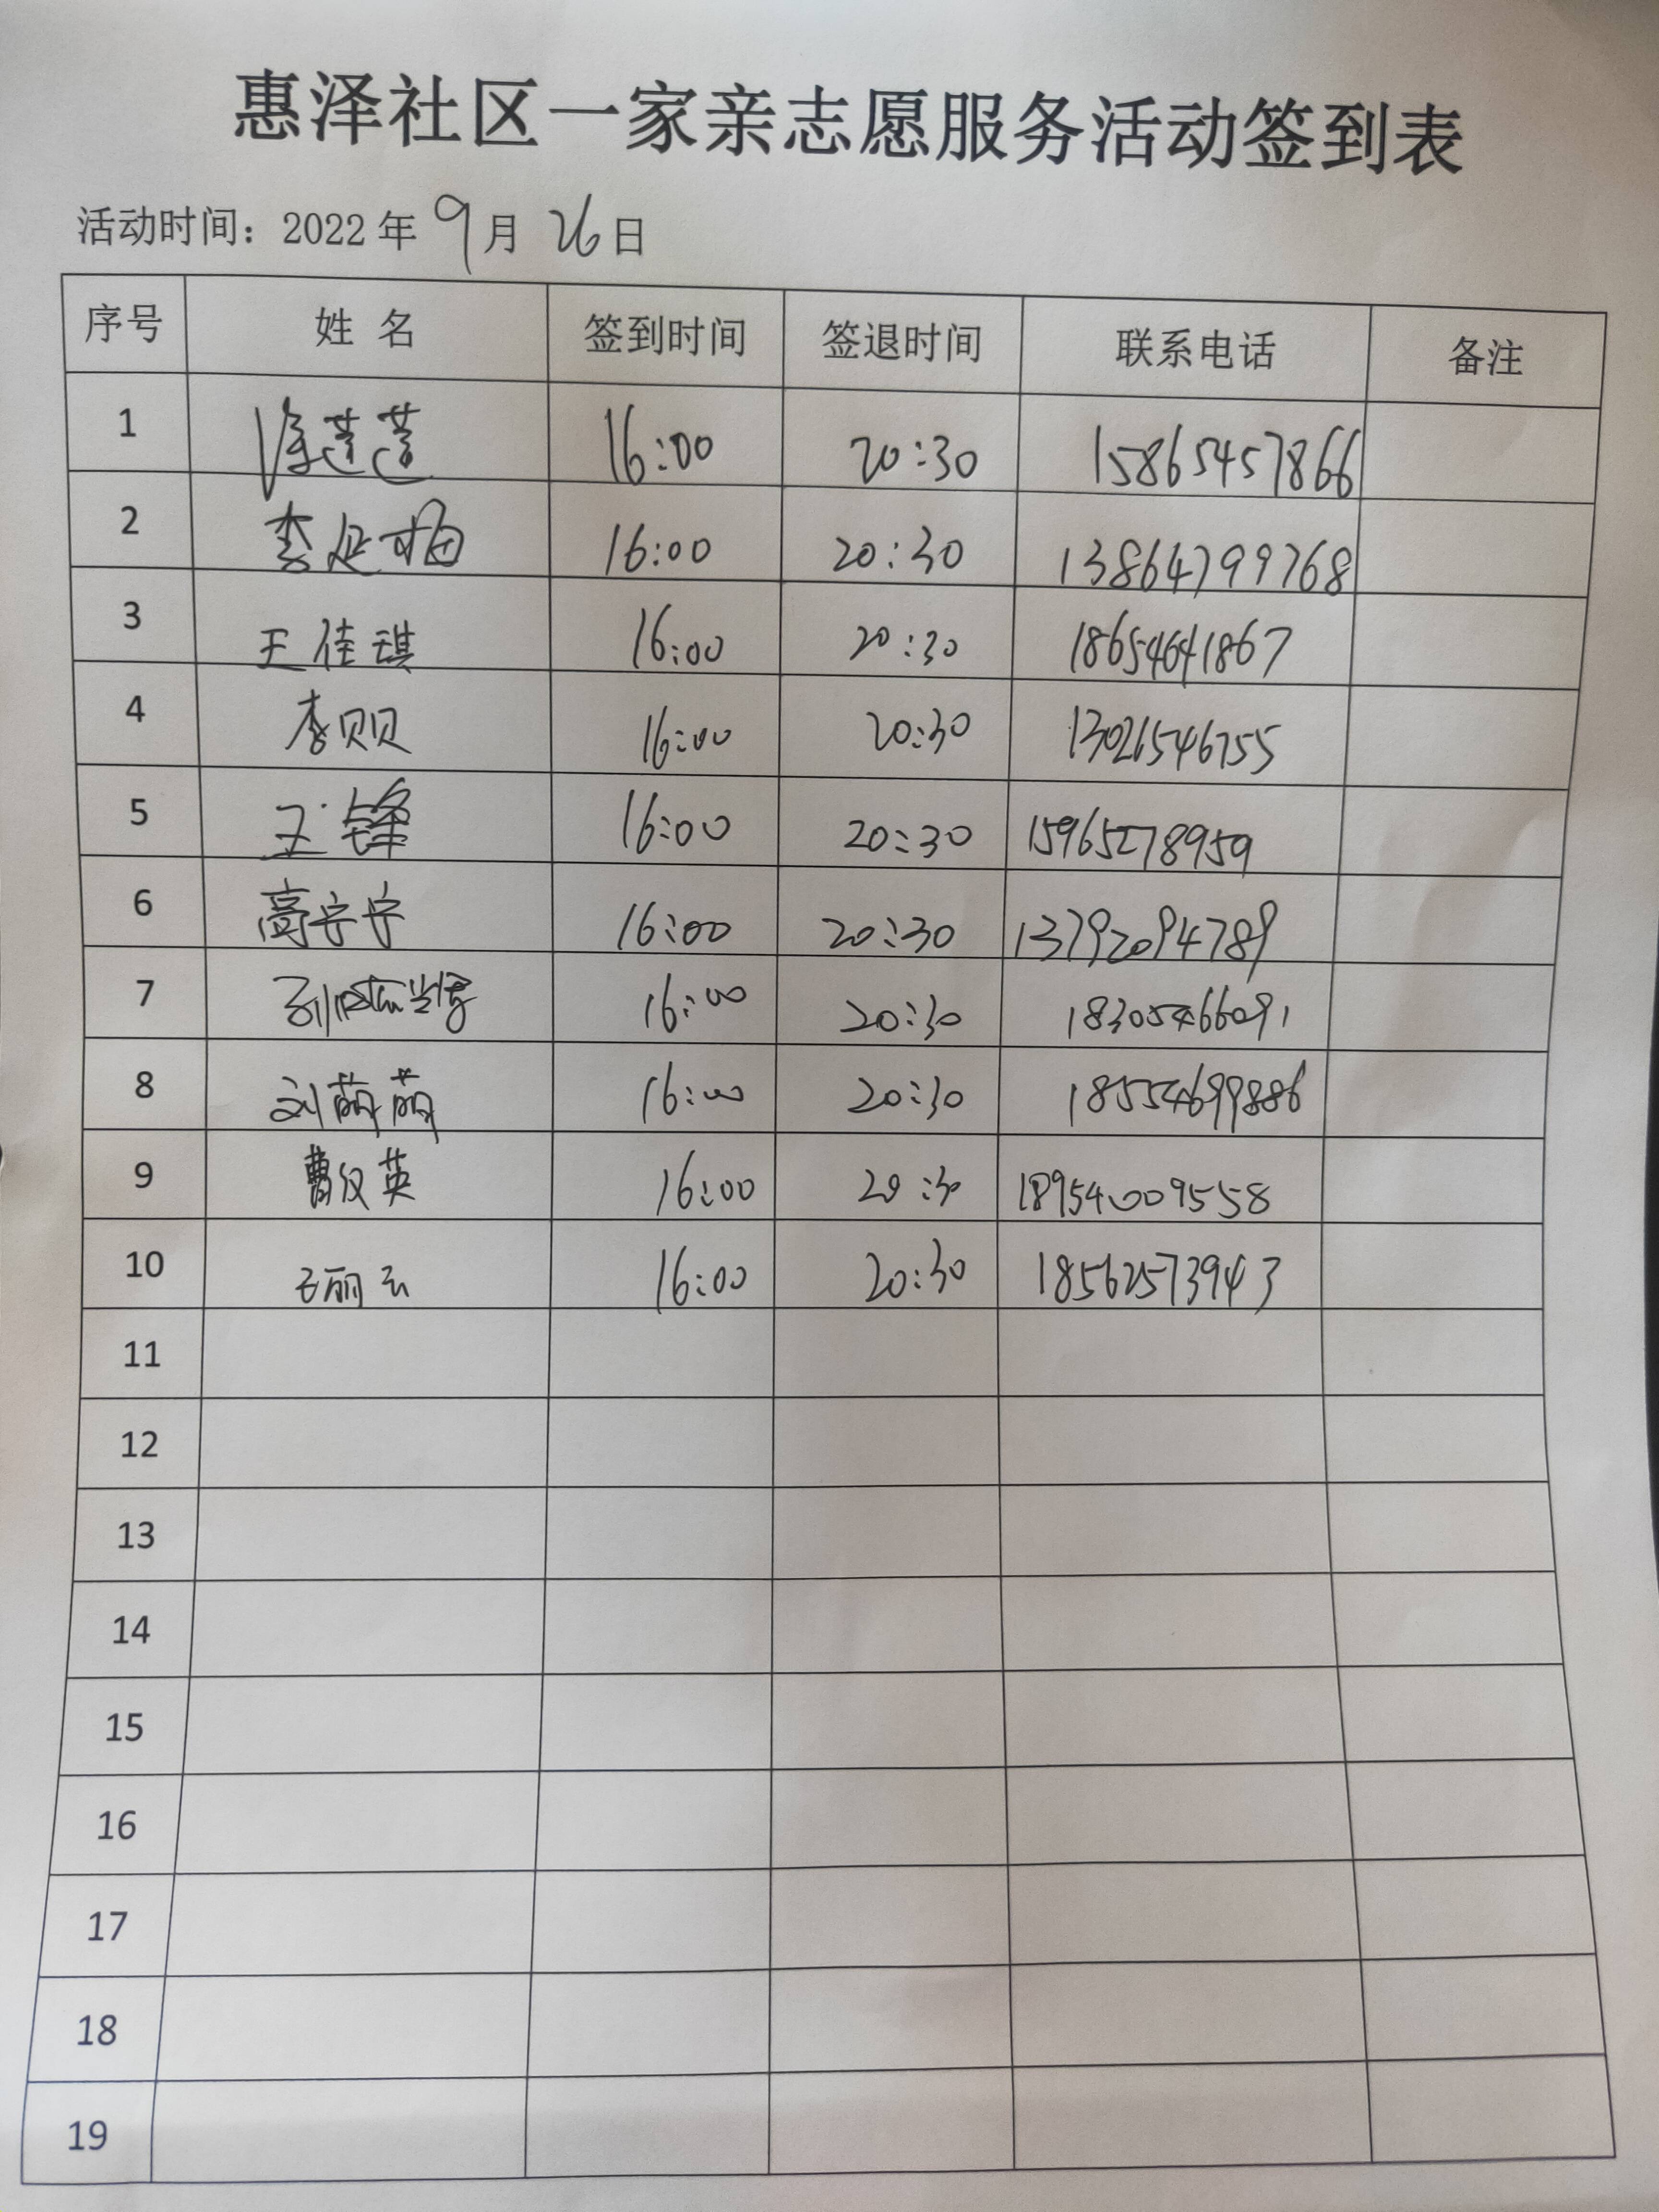 惠泽社区一家亲志愿服务活动签到表
活动时间：2022年9月26日
序号 姓 名 签到时间 签退时间 联系电话 备注
1 徐莲莲 16:00 20:30 15865457866
2 李延梅 16:00 20:30 13864799768
3 王佳琪 16:00 20:30 18654641867
4 李贝贝 16:00 20:30 13021546755
5 王锋 16:00 20:30 15965278959
6 高宁宁 16:00 20:30 13792094789
7 16:00 20:30 18305466091
8 刘萌萌 16:00 20:30 18554699886
9 曹仪英 16:00 20:30 189540009558
10 王丽云 16:00 20:30 18562573943
11
12
13
14
15
16
17
18
19